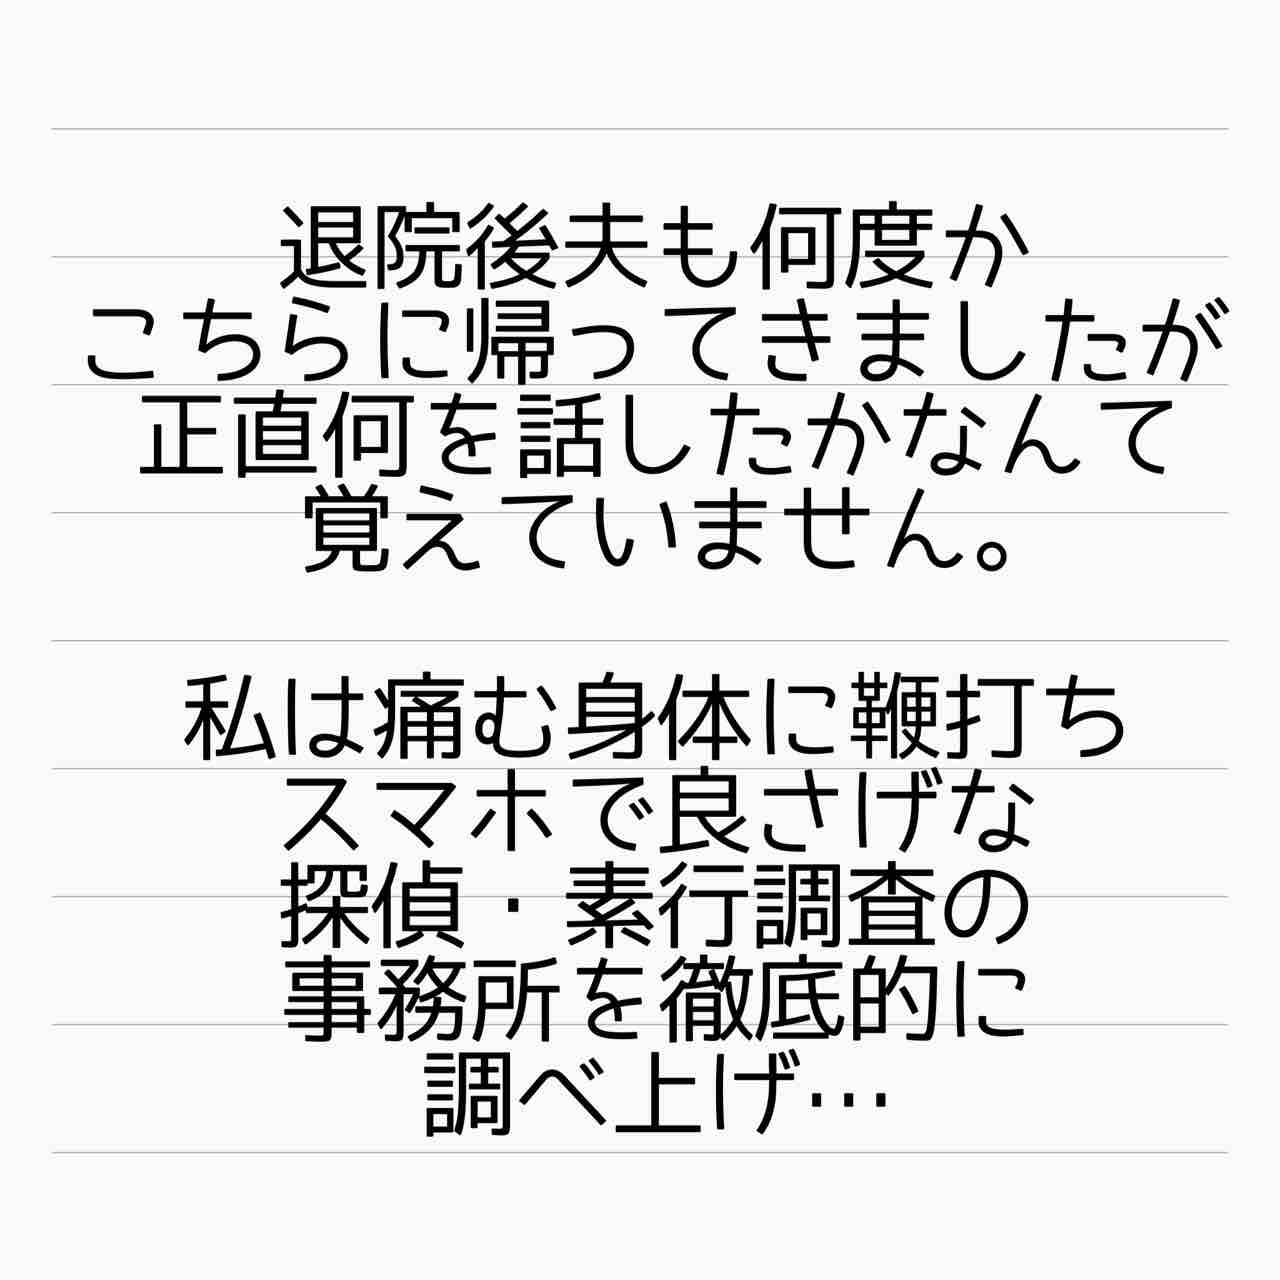 退院後夫も何度か
こちらに帰ってきましたが
正直何を話したかなんて
覚えていません。
私は痛む身体に鞭打ち
スマホで良さげな
探偵・素行調査の
事務所を徹底的に
調べ上げ…